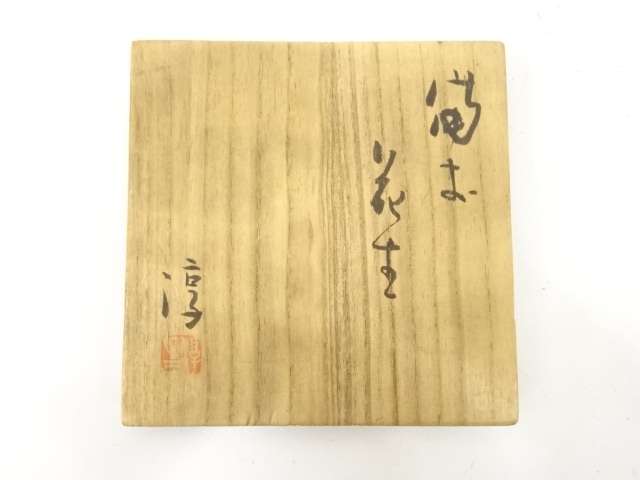 備前
花生
淳